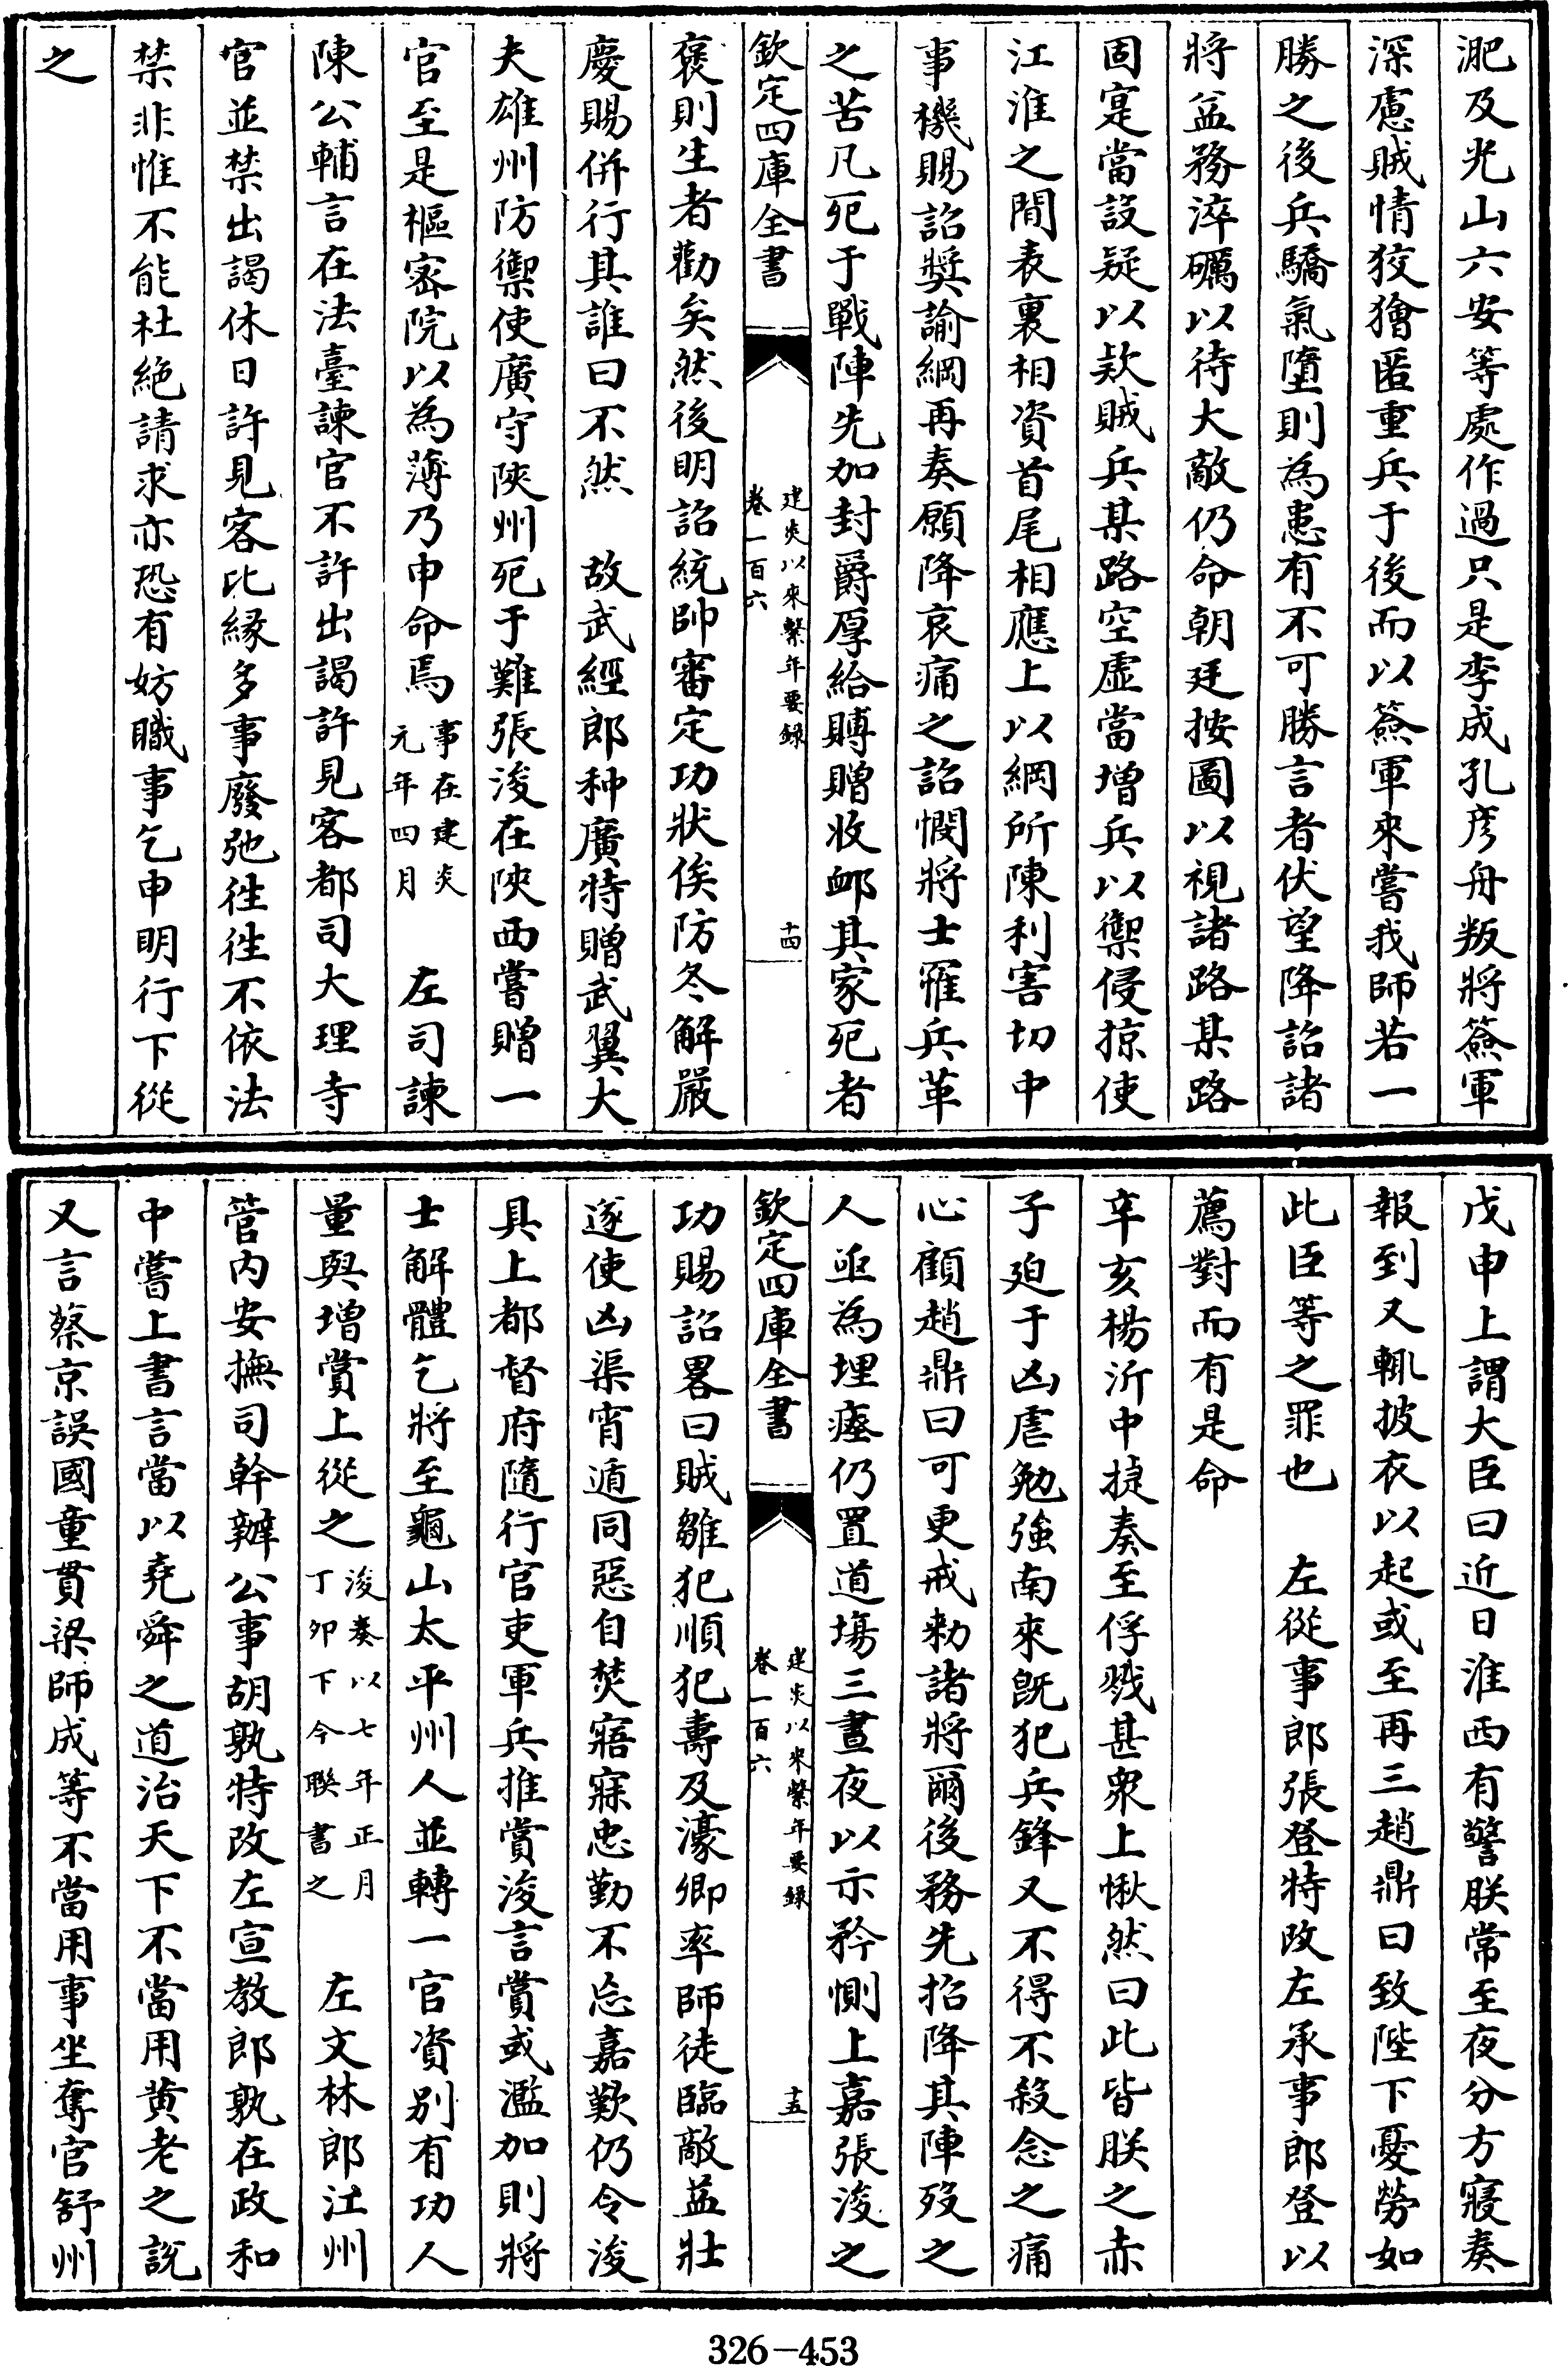 淝及光山六安等處作過只是李成孔彦舟叛將簽軍
深慮賊情狡獪匿重兵于後而以簽軍來嘗我師若一
勝之後兵驕氣墮則為患有不可勝言者伏望降詔諸
將益務淬礪以待大敵仍命朝廷按圖以視諸路某路
固寔當設疑以欵賊兵某路空虛當增兵以禦侵掠使
江淮之間表裏相資首尾相應上以綱所陳利害切中
事機賜詔奨諭綱再奏願降哀痛之詔憫將士罹兵革
之苦凡死于戰陣先加封爵厚給賻贈收邺其家死者
欽定四庫全書
建炎以來繫年要錄
卷一百六
十四
褒則生者勸矣然後明詔統帥審定功狀俟防冬解嚴
慶賜併行其誰曰不然　故武經郎种廣特贈武翼大
夫雄州防禦使廣守陜州死于難張浚在陜西嘗贈一
官至是樞宻院以為薄乃申命焉事在建炎
元年四月　左司諫
陳公輔言在法臺諫官不許出謁許見客都司大理寺
官並禁出謁休日許見客比緣多事廢弛徃徃不依法
禁非惟不能杜絶請求亦恐有妨職事乞申明行下從
之
戊申上謂大臣曰近日淮西有警朕常至夜分方寢奏
報到又輒披衣以起或至再三趙鼎曰致陛下憂勞如
此臣等之罪也　左從事郎張登特改左承事郎登以
薦對而有是命
辛亥楊沂中捷奏至俘戮甚衆上愀然曰此皆朕之赤
子廹于凶虐勉強南來既犯兵鋒又不得不殺念之痛
心顧趙鼎曰可更戒勅諸將爾後務先招降其陣殁之
人亟為埋瘞仍置道塲三晝夜以示矜惻上嘉張浚之
欽定四庫全書
建炎以來繫年要錄
卷一百六
十五
功賜詔畧曰賊雛犯順犯壽及濠卿率師徒臨敵益壯
遂使凶渠宵遁同惡自焚寤寐忠勤不忘嘉歎仍令浚
具上都督府隨行官吏軍兵推賞浚言賞或濫加則將
士解體乞將至龜山太平州人並轉一官資别有功人
量與增賞上從之浚奏以七年正月
丁卯下今聯書之　左文林郎江州
管内安撫司幹辦公事胡孰特改左宣教郎孰在政和
中嘗上書言當以堯舜之道治天下不當用黄老之說
又言蔡京誤國童貫梁師成等不當用事坐奪官舒州
326-453